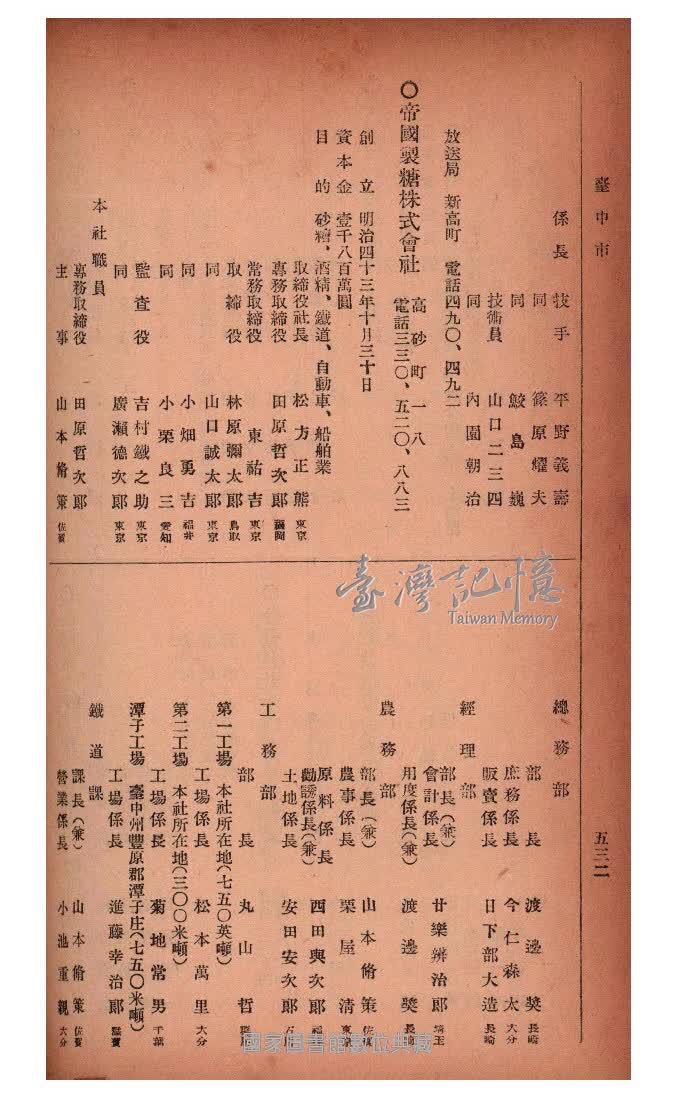 臺中市
五三二
係長 技手 平野義壽
同 篠原燿夫
同 鮫島巍
技術員 山口二三四
同 內園朝治
放送局 新高町 電話四九〇、四九二
〇帝國製糖株式會社 高砂町一ノ八
電話三三〇、五二〇、八八三
創立 明治四十三年十月三十日
資本金 壹千八百萬圓
目的 砂糖、酒精、鐵道、自動車、船舶業
取締役社長 松方正熊 東京
專務取締役 田原哲次郎 福岡
常務取締役 東祐吉 東京
取締役 林原彌太郎 鳥取
同 山口誠太郎 東京
同 小畑勇吉 福井
同 小栗良三 愛知
監查役 吉村鐵之助 東京
同 廣瀨德次郎 東京
本社職員
專務取締役 田原哲次郎
主事 山本脩策 佐賀
總務部
部長 渡邊獎 長崎
庶務係長 今仁森太 大分
販賣係長 日下部大造 長崎
經理部
部長(兼)
會計係長 廿樂辨治郎 埼玉
用度係長(兼) 渡邊獎 長崎
農務部
部長(兼) 山本脩策 佐賀
農事係長 栗屋清 東京
原料係長
勸誘係長(兼) 西田與次郎
土地係長 安田安次郎
工務部
部長 丸山哲
第一工場 本社所在地(七五〇英噸)
工場係長 松本萬里 大分
第二工場 本社所在地(三〇〇米噸)
工場係長 菊地常男 千葉
潭子工場 臺中州豐原郡潭子庄(七五〇米噸)
工場係長 進藤幸治郎 滋賀
鐵道課
課長(兼) 山本脩策 佐賀
營業係長 小池重親 大分
臺灣記憶
Taiwan Memory
國家圖書館數位典藏